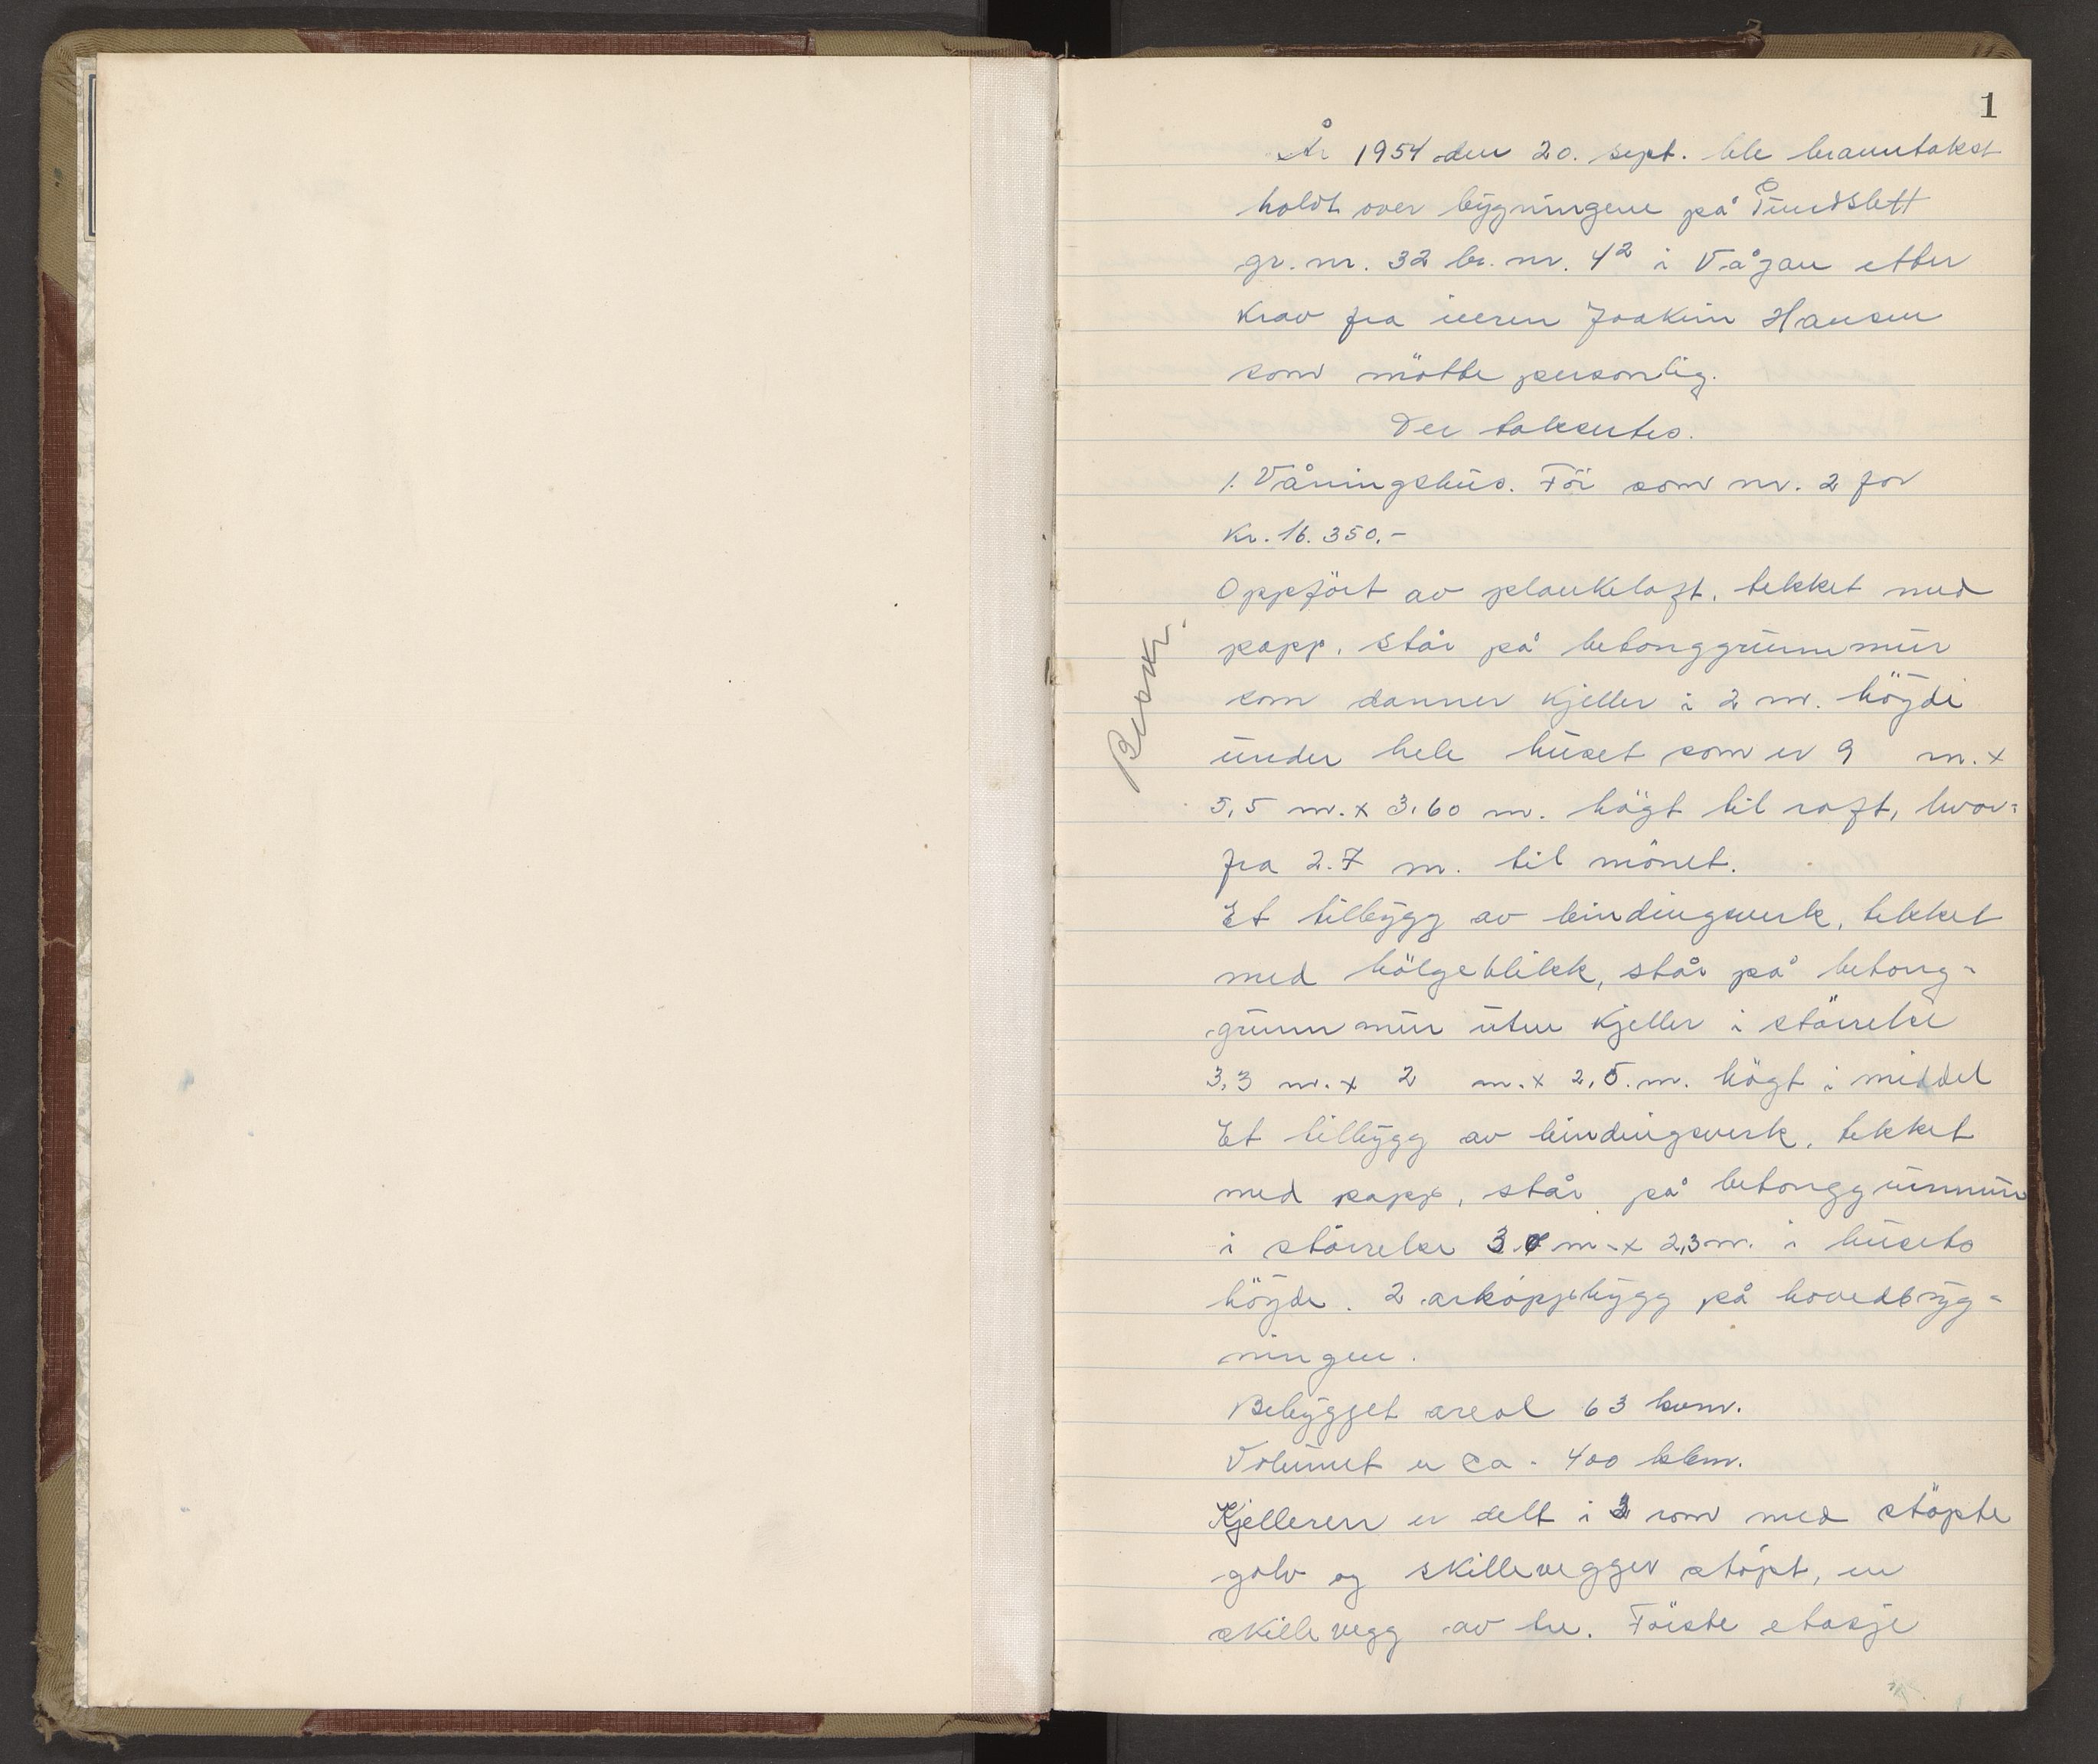 1
År 1954 den 20. sept. ble branntakst
holdt over bygningene på
gr. nr. 32 br. nr. 42 i Vågan etter
krav fra eieren Joakim Hansen
som mötte personlig.
Der taksertes.
1. Våningshus. För som nr. 2 for
kr. 16.350.-
Oppfört av plankelaft, tekket med
papp, står på betonggrunnmur
som danner kjeller i 2 m. höyde
under hele huset som er 9 m. x
5,5 m. x 3.60 m. högt til raft, hvor-
fra 2.7 m. til mönet.
Et tilbygg av bindingsverk, tekket
med bölgeblikk, står på betong-
grunnmur uten kjeller i störrelse
3,3 m. x 2 m. x 2,5. m. högt i middel
Et tilbygg av bindingsverk, tekket
med papp, står på betonggrunnmur
i störrelse m. x 2,3 m. i husets
höyde. 2 arkoppbygg på hovedbyg-
ningen.
Bebygget areal 63 kvm.
Volumet er ca. 400 kbm.
Kjelleren er delt i rom med stöpte
golv og skillevegger stöpt, en
skillevegg av tre. Förste etasje